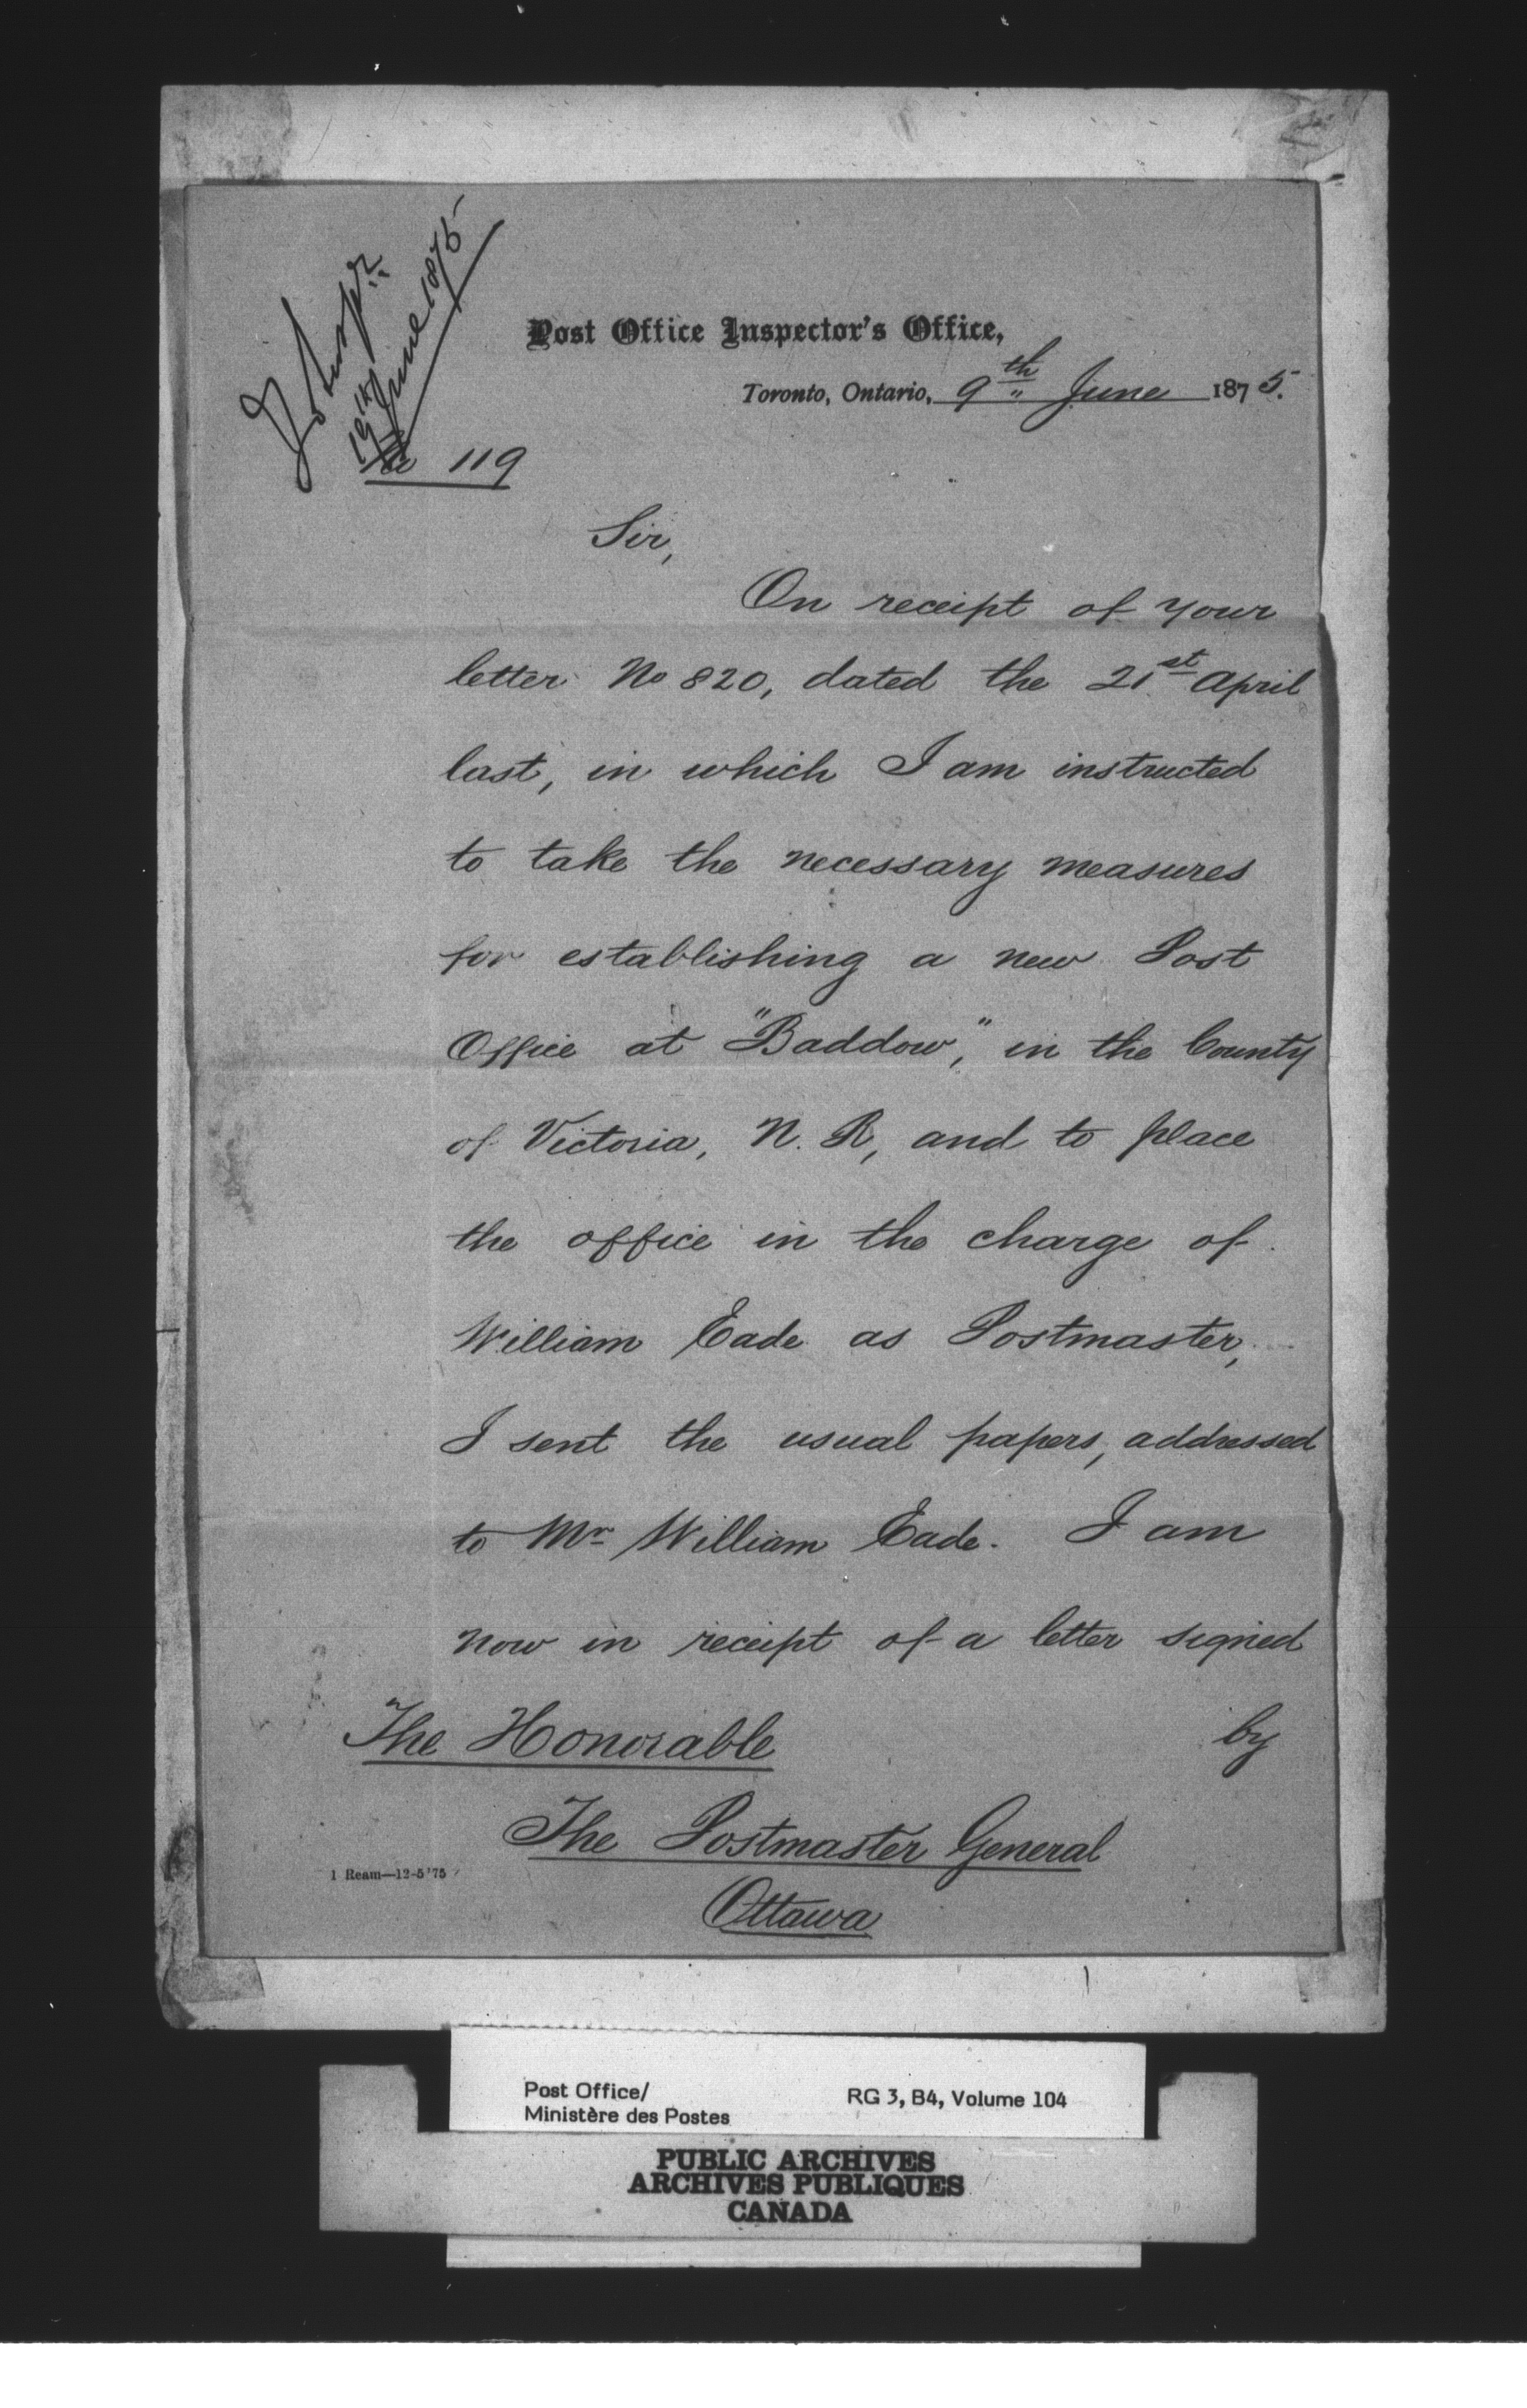 To Inspr
19th June 1875
Post Office Inspector's Office,
Toronto, Ontario, 9th June 1875.
119
Sir,
On receipt of your
letter No 820, dated the 21st April
last, in which I am instructed
to take the necessary measures
for establishing a new Post
Office at "Baddow," in the County
of Victoria, N. R, and to place
the office in the charge of
William Eade as Postmaster,
I sent the usual papers, addressed
to Mr William Eade. I am
now in receipt of a letter signed
by
The Honorable
The Postmaster General
Ottawa
1 Ream—12-5'75
Post Office/
Ministère des Postes
RG 3, B4, Volume 104
PUBLIC ARCHIVES
ARCHIVES PUBLIQUES
CANADA